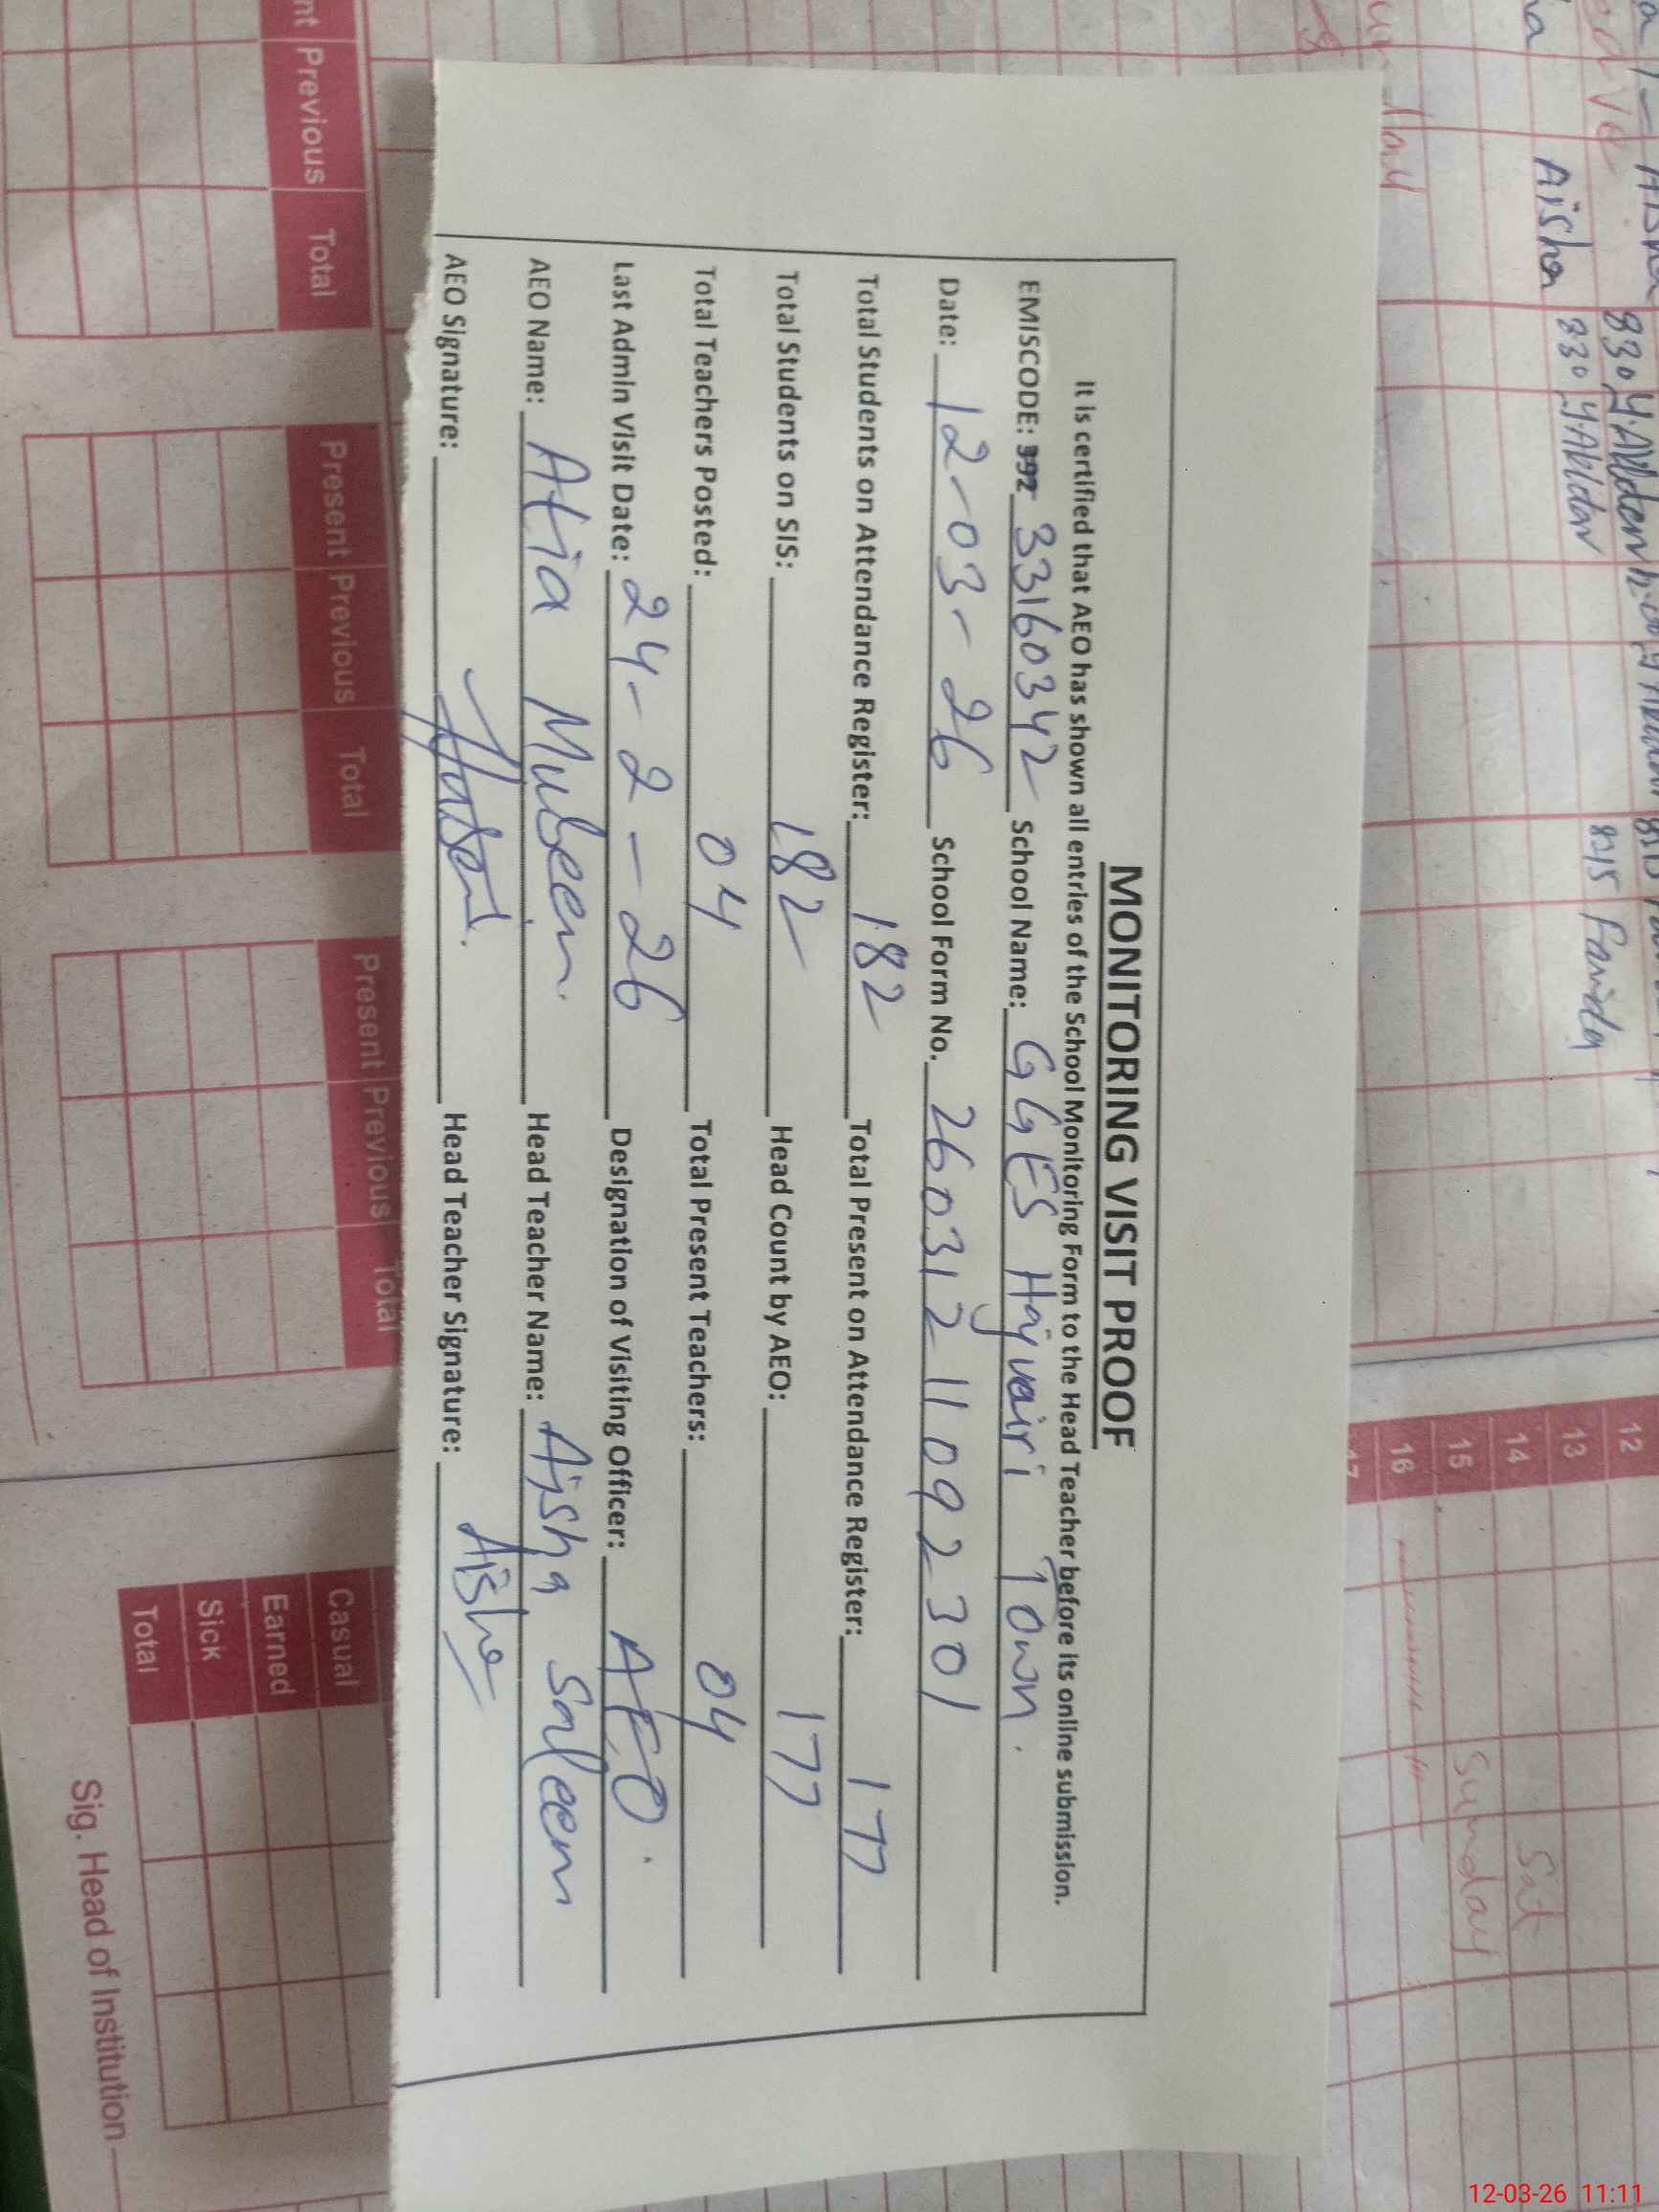 MONITORING VISIT PROOF
It is certified that AEO has shown all entries of the School Monitoring Form to the Head Teacher before its online submission.
EMISCODE: 392 33160342 School Name: GGES Hajvairi Town.
Date: 12-03-26 School Form No. 26031211092301
Total Students on Attendance Register: 182 Total Present on Attendance Register: 177
Total Students on SIS: 182 Head Count by AEO: 177
Total Teachers Posted: 04 Total Present Teachers: 04
Last Admin Visit Date: 24-2-26 Designation of Visiting Officer: AEO.
AEO Name: Atia Mubeen. Head Teacher Name: Aisha Saleem
AEO Signature: Head Teacher Signature: Aisha
Aisha 830
830
815 Farida
12
13
14 Sat
15 Sunday
16
17
Previous Total
Present Previous Total
Present Previous Total
Casual
Earned
Sick
Total
Sig. Head of Institution
12-03-26 11:11